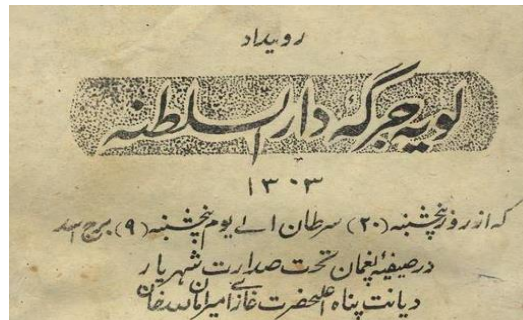 رویداد
لویه جرگهٔ دارالسلطنه
۱۳۰۳
که از روز پنجشنبه (۲۰) سرطان الی یوم پنجشنبه (۹) برج اسد
در صیفیهٔ پغمان تحت صدارت شهریار
دیانت پناه اعلیحضرت غازی امیر امان الله خان